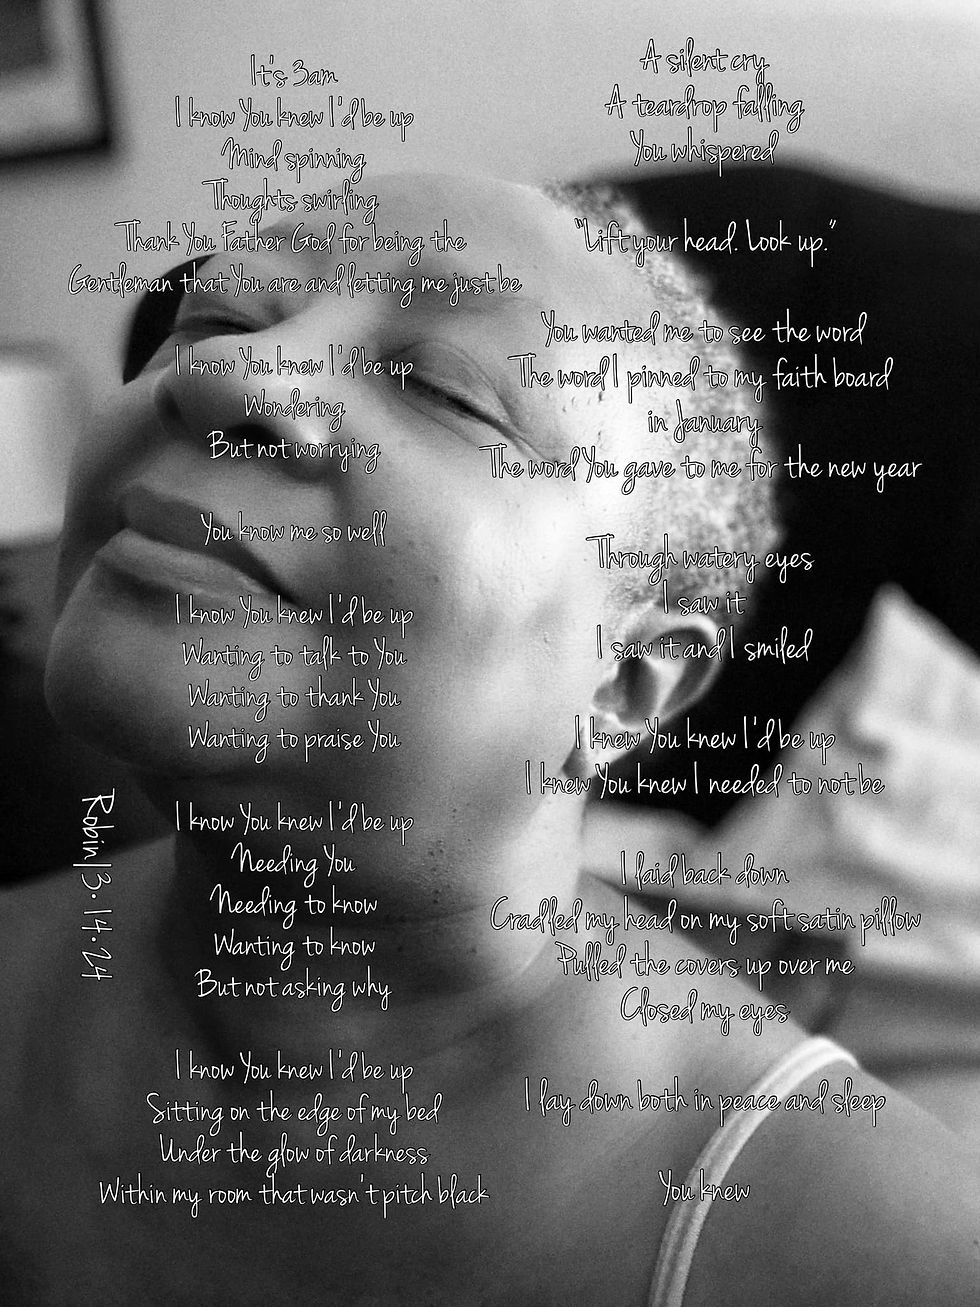 It's 3am
I know You knew I'd be up
Mind spinning
Thoughts swirling
Thank You Father God for being the
Gentleman that You are and letting me just be
I know You knew I'd be up
Wondering
But not worrying
You know me so well
I know You knew I'd be up
Wanting to talk to You
Wanting to thank You
Wanting to praise You
I know You knew I'd be up
Needing You
Needing to know
Wanting to know
But not asking why
I know You knew I'd be up
Sitting on the edge of my bed
Under the glow of darkness
Within my room that wasn't pitch black
A silent cry
A teardrop falling
You whispered
"Lift your head. Look up."
You wanted me to see the word
The word I pinned to my faith board
in January
The word You gave to me for the new year
Through watery eyes
I saw it
I saw it and I smiled
I knew You knew I'd be up
I knew You knew I needed to not be
I laid back down
Cradled my head on my soft satin pillow
Pulled the covers up over me
Closed my eyes
I lay down both in peace and sleep
You knew
Robin|3.14.24